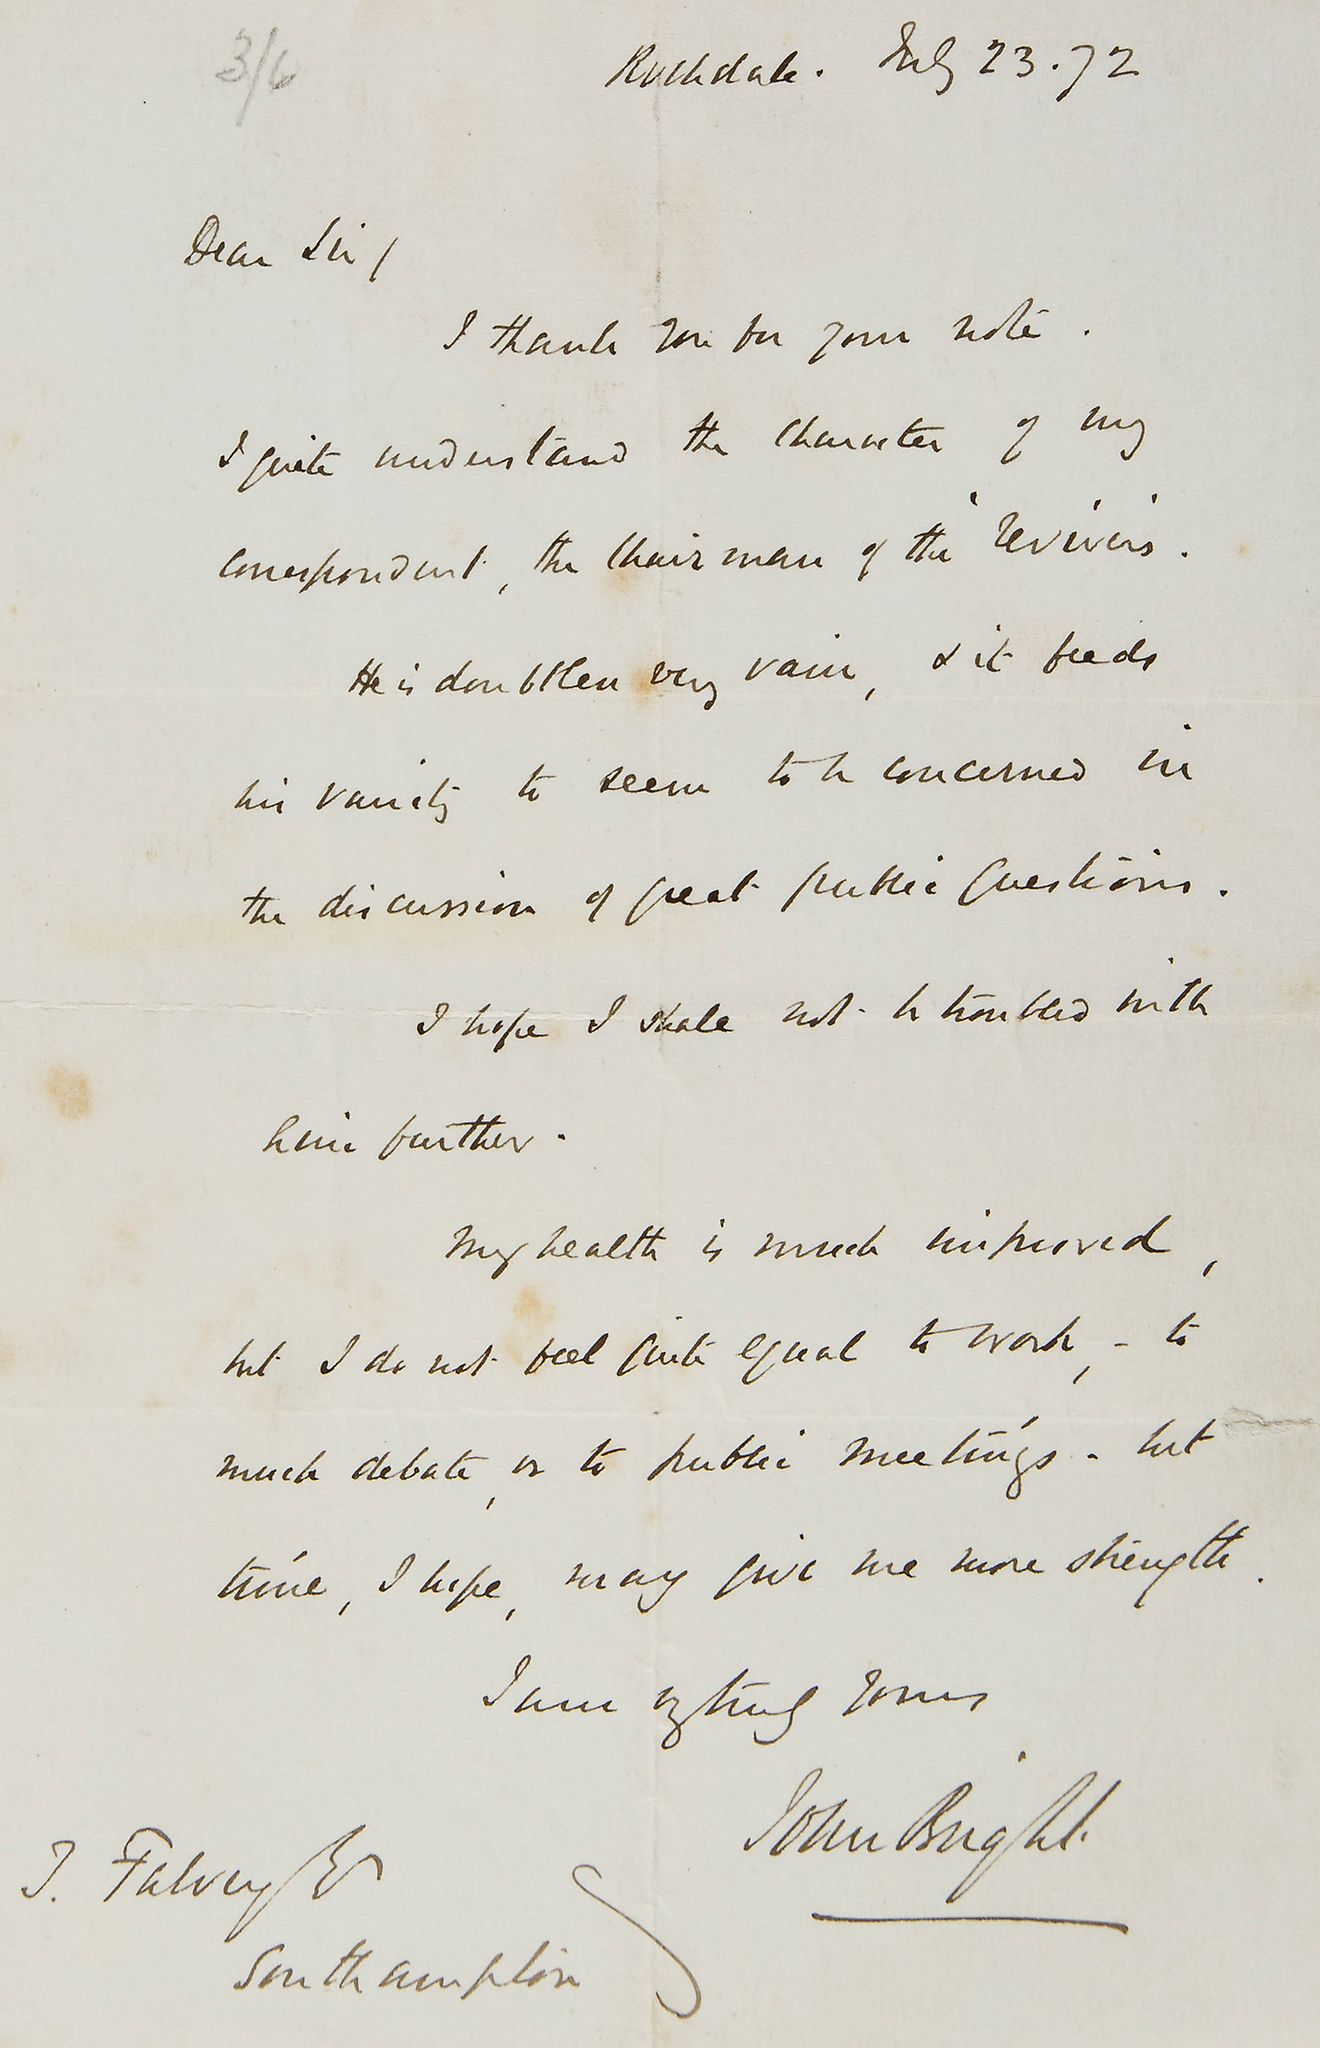 3/6
Rochdale. July 23. 72
Dear Sir/
I thank you for your note.
I quite understand the character of my
correspondent, the Chairman of the "Revivers.
He is doubtless very vain, & it feeds
his vanity to seem to be concerned in
the discussion of great public questions.
I hope I shall not be troubled with
him further.
My health is much improved,
but I do not feel quite equal to work, - to
much debate, or to public meetings - but
time, I hope, may give me more strength.
I am vy truly yours
John Bright.
T. Falvey Esqr
Southampton